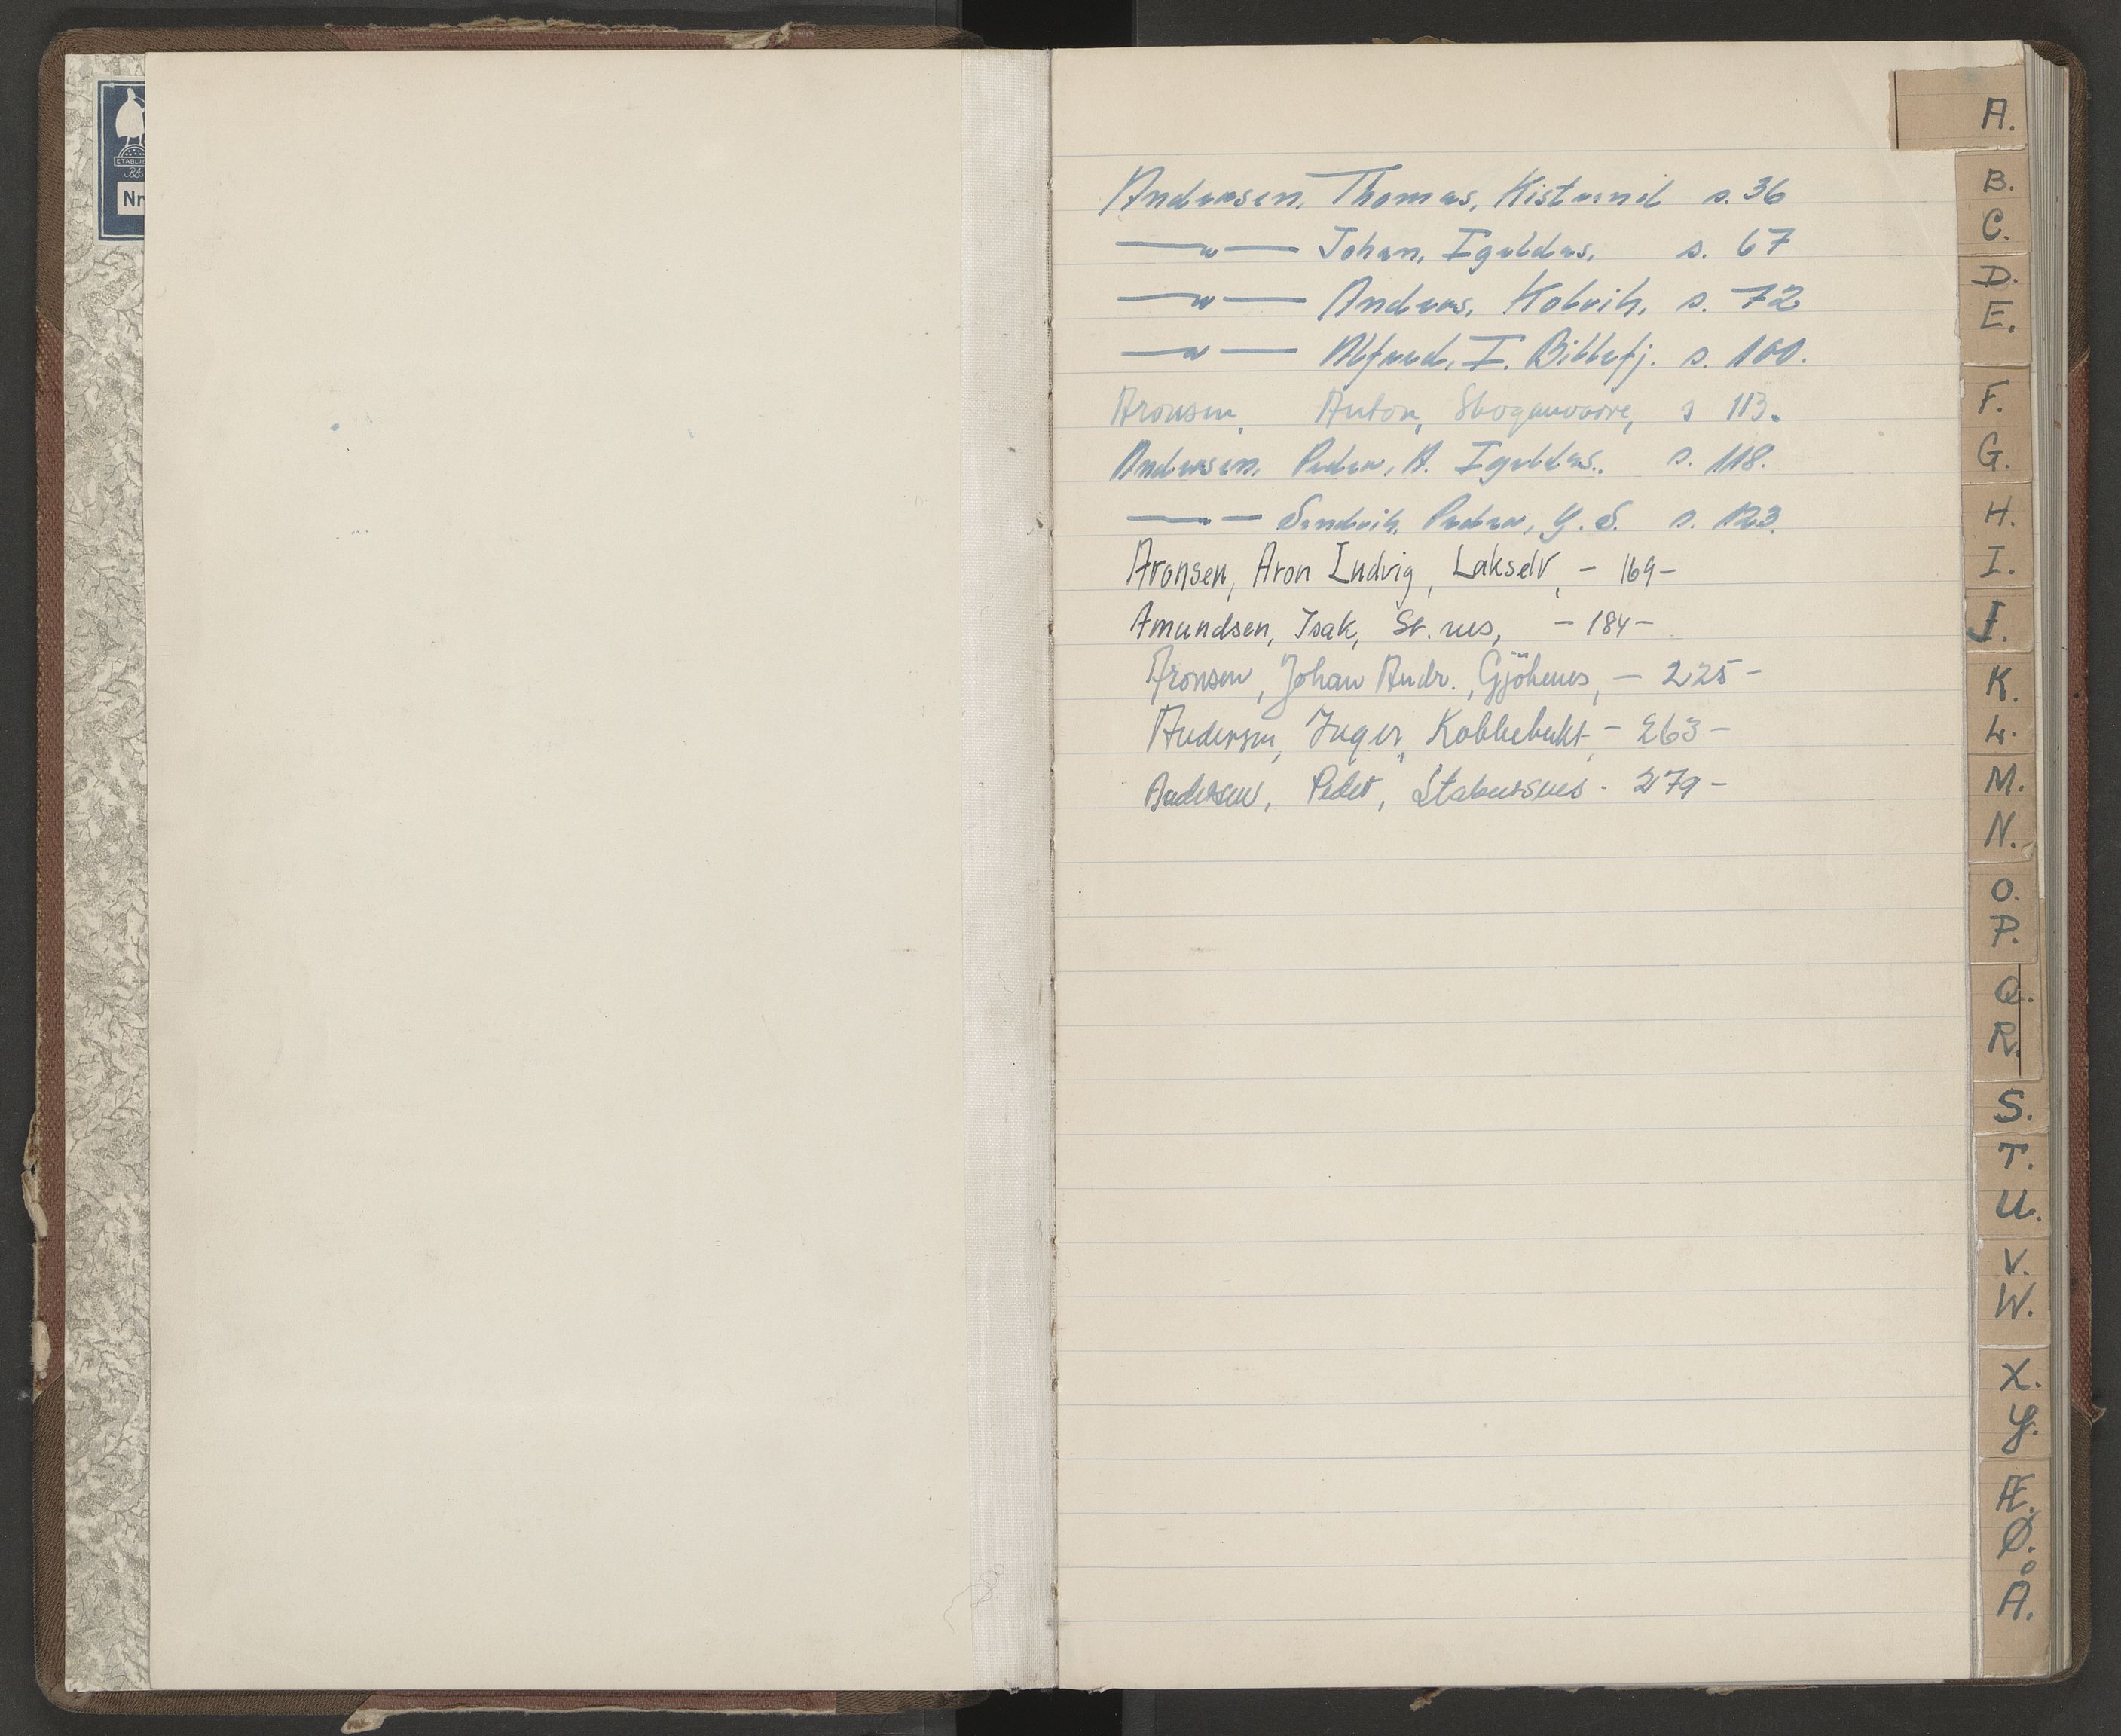 ETABL
Nr
A.
Andersen, Thomas, Kistrand s. 36
—"— Johan, Igeldas, s. 67
—"— Anders, Kolvik, s. 72
—"— Alfred, I. Billefj. s. 100.
Aronsen, Anton, Skoganvarre, s 113.
Andersen, Peder, A. Igeldas. s. 118.
—"— Sandvik, Peder, Y. S. s. 123.
Aronsen, Aron Ludvig, Lakselv, - 169 -
Amundsen, Isak, St. nes, - 184 -
Aronsen, Johan Andr., Gjökenes, - 225 -
Andersen, Inger, Kobbebukt, - 263 -
Andersen, Peder, Stabursnes - 279 -
B.
C.
D.
E.
F.
G.
H.
I.
J.
K.
L.
M.
N.
O.
P.
Q.
R.
S.
T.
U.
V.
W.
X.
Y.
Æ.
Ø.
Å.